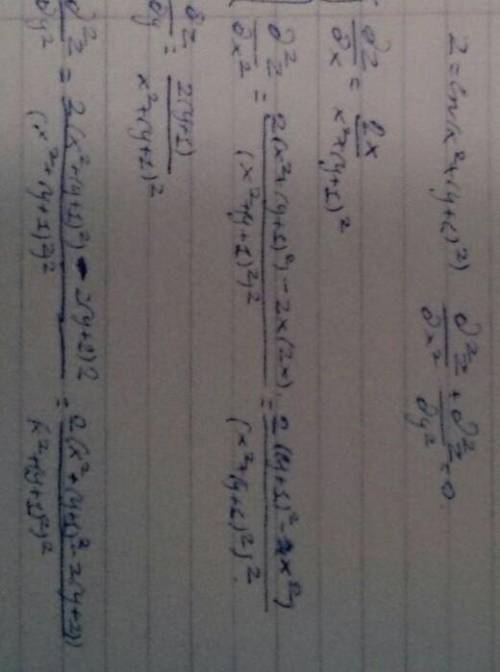 z = ln(x²+(y+1)²) ∂²z/∂x² + ∂²z/∂y² = 0.
∂z/∂x = 2x/(x²+(y+1)²)
∂²z/∂x² = (2(x²+(y+1)²) - 2x(2x))/(x²+(y+1)²)² = 2((y+1)² - x²)/(x²+(y+1)²)².
∂z/∂y = 2(y+1)/(x²+(y+1)²)
∂²z/∂y² = (2(x²+(y+1)²) - 2(y+1)2)/(x²+(y+1)²)² = 2(x²+(y+1)²-2(y+1))/(x²+(y+1)²)²